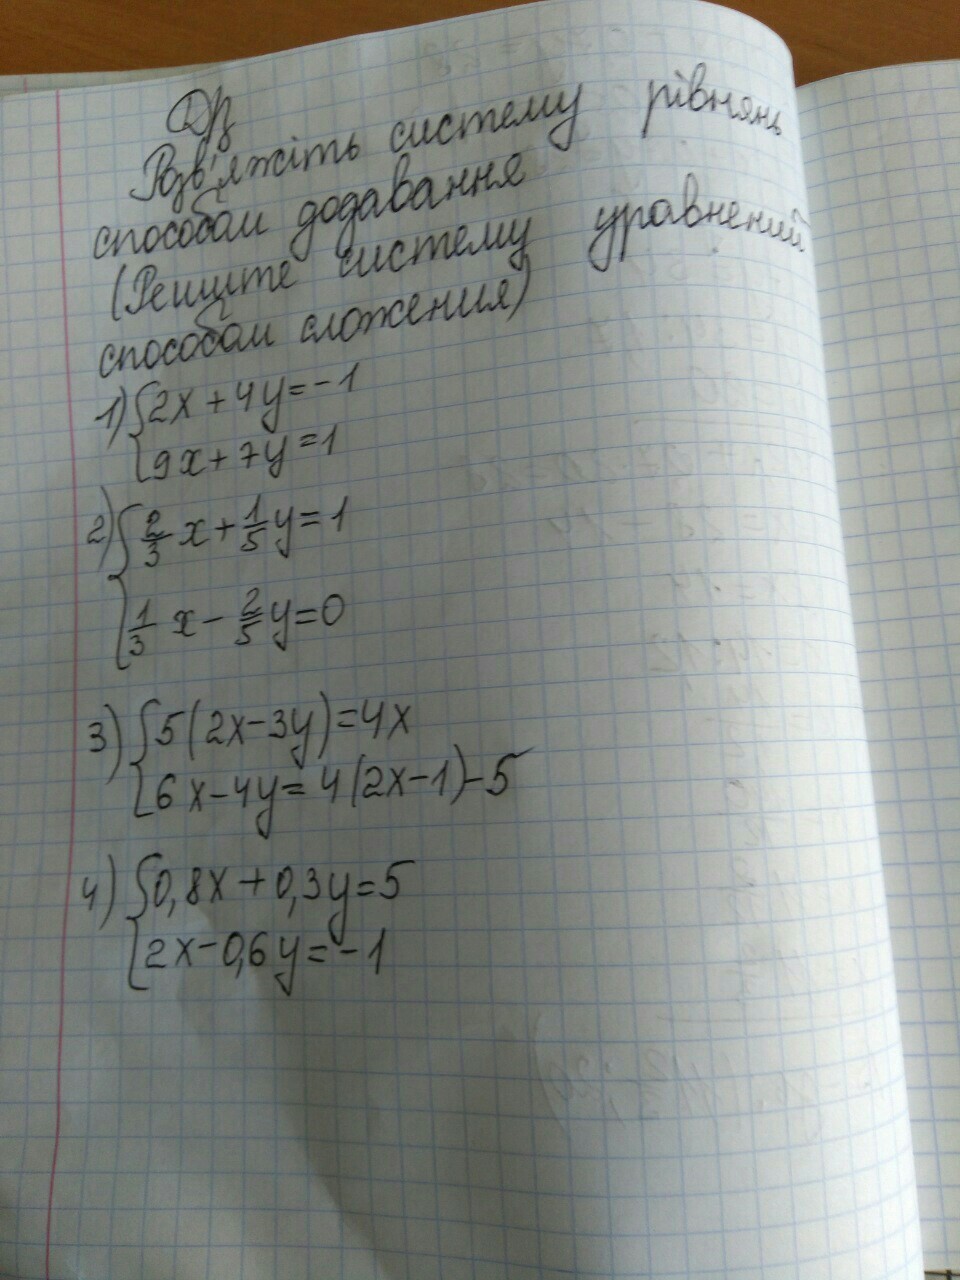 ДЗ
Розв'яжіть систему рівнянь
способом додавання
(Решите систему уравнений
способом сложения)
1) {2x+4y=-1
{9x+7y=1
2) {2/3 x+1/5 y=1
{1/3 x-2/5 y=0
3) {5(2x-3y)=4x
{6x-4y=4(2x-1)-5
4) {0,8x+0,3y=5
{2x-0,6y=-1